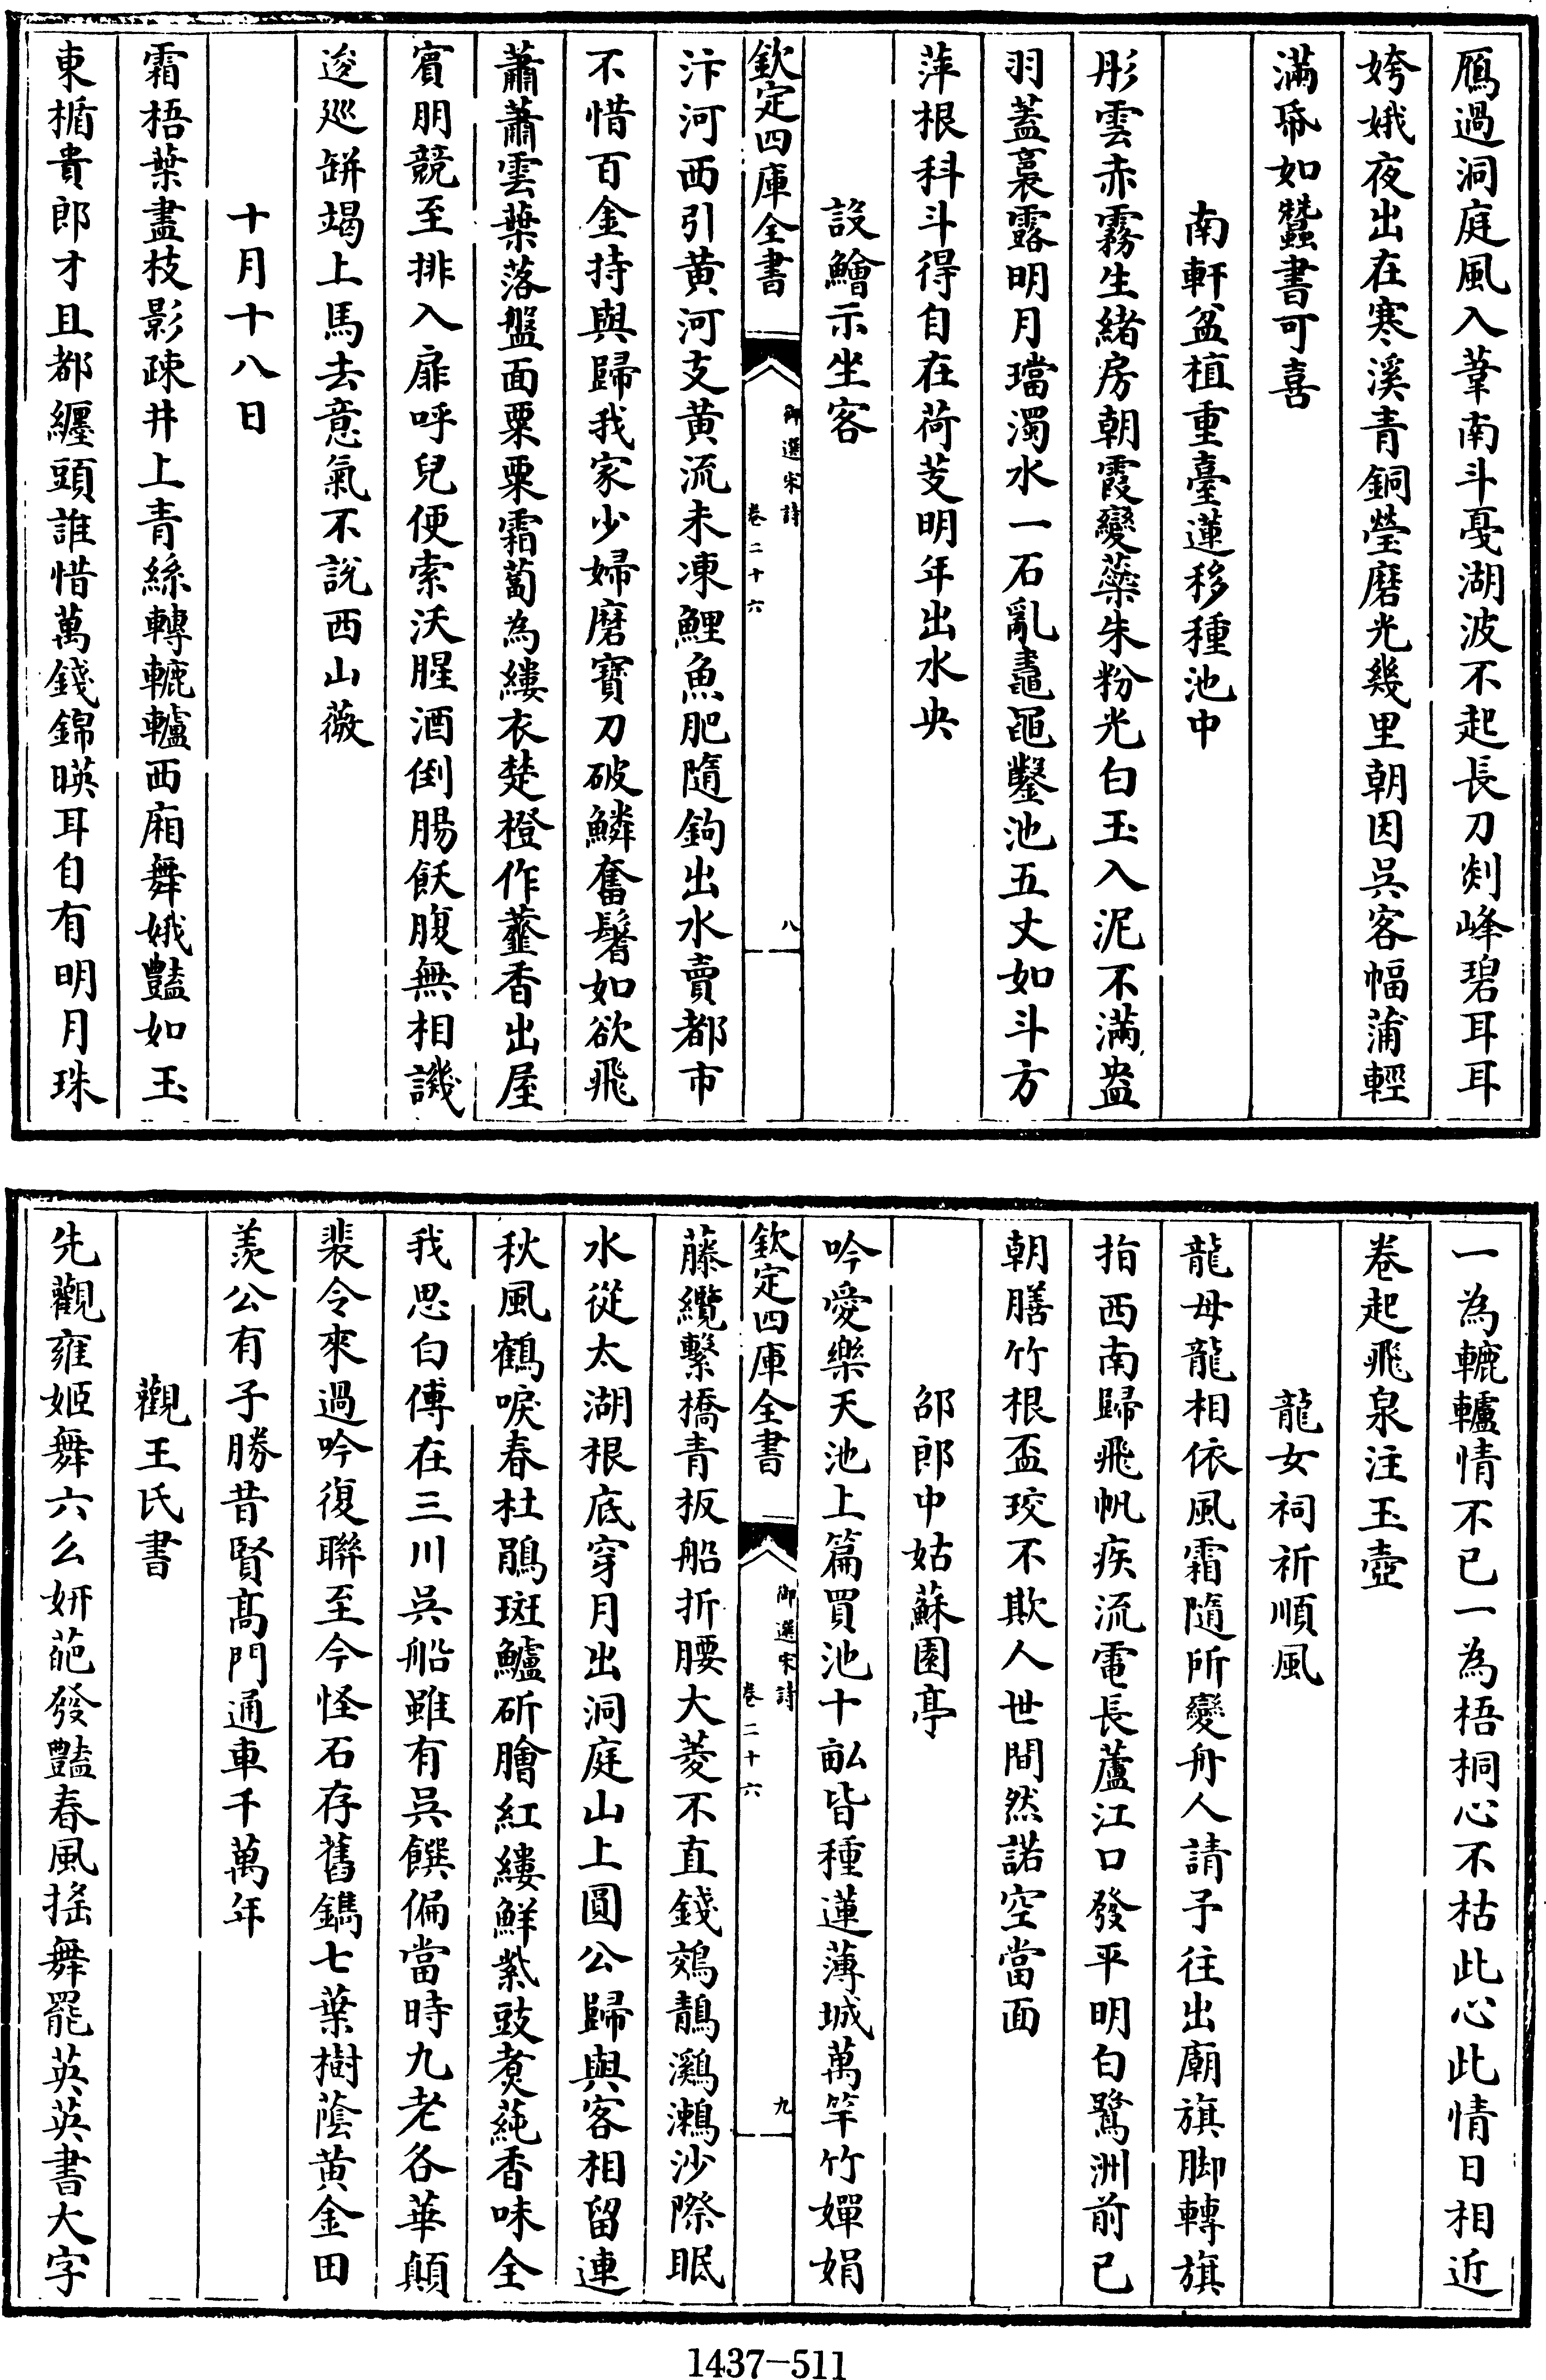 鴈過洞庭風入葦南斗戞湖波不起長刀剡峰碧耳耳
姱娥夜出在寒溪青銅瑩磨光幾里朝因吳客幅蒲輕
滿帋如蠶書可喜
南軒盆植重臺蓮移種池中
彤雲赤霧生緒房朝霞變蘂朱粉光白玉入泥不滿盎
羽蓋裛露明月璫濁水一石亂鼃黽鑿池五丈如斗方
萍根科斗得自在荷芰明年出水央
設鱠示坐客
欽定四庫全書
御選宋詩
卷二十六
八
汴河西引黃河支黃流未凍鯉魚肥隨鉤出水賣都市
不惜百金持與歸我家少婦磨寶刀破鱗奮鬐如欲飛
蕭蕭雲葉落盤面粟粟霜蔔為縷衣楚橙作虀香出屋
賓朋競至排入扉呼兒便索沃腥酒倒腸飫腹無相譏
逡廵缾竭上馬去意氣不說西山薇
十月十八日
霜梧葉盡枝影疎井上青絲轉轆轤西廂舞娥豔如玉
東楯貴郎才且都纏頭誰惜萬錢錦暎耳自有明月珠
一為轆轤情不已一為梧桐心不枯此心此情日相近
卷起飛泉注玉壺
龍女祠祈順風
龍母龍相依風霜隨所變舟人請予往出廟旗脚轉旗
指西南歸飛帆疾流電長蘆江口發平明白鷺洲前已
朝膳竹根盃珓不欺人世間然諾空當面
邵郎中姑蘇園亭
吟愛樂天池上篇買池十畝皆種蓮薄城萬竿竹嬋娟
欽定四庫全書
御選宋詩
卷二十六
九
藤纜繫橋青板船折腰大菱不直錢鵁鶄鸂鷘沙際眠
水從太湖根底穿月出洞庭山上圓公歸與客相留連
秋風鶴唳春杜鵑斑鱸斫膾紅縷鮮紫豉煑蒓香味全
我思白傅在三川吳船雖有吳饌偏當時九老各華顛
裴令來過吟復聯至今怪石存舊鐫七葉樹蔭黃金田
羨公有子勝昔賢髙門通車千萬年
觀王氏書
先觀雍姬舞六么妍葩發豔春風搖舞罷英英書大字
1437-511